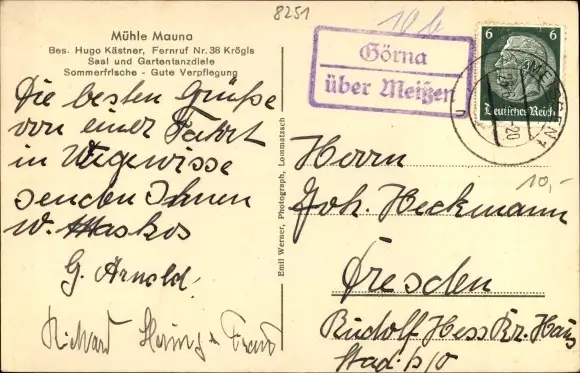 8251
Mühle Mauna
Bes. Hugo Kästner, Fernruf Nr. 38 Krögis
Saal und Gartentanzdiele
Sommerfrische - Gute Verpflegung
Die besten Grüße
von einer Fahrt
in Ungewisse
senden Ihnen
W.
G. Arnold.
Richard
Frau
Emil Werner, Photograph, Lommatzsch
Görna
über Meißen
6 6
Deutsches Reich
MEISSEN 1
20
Herrn
Joh. Heckmann
10,-
Dresden
Rudolf Hess Kr. Haus